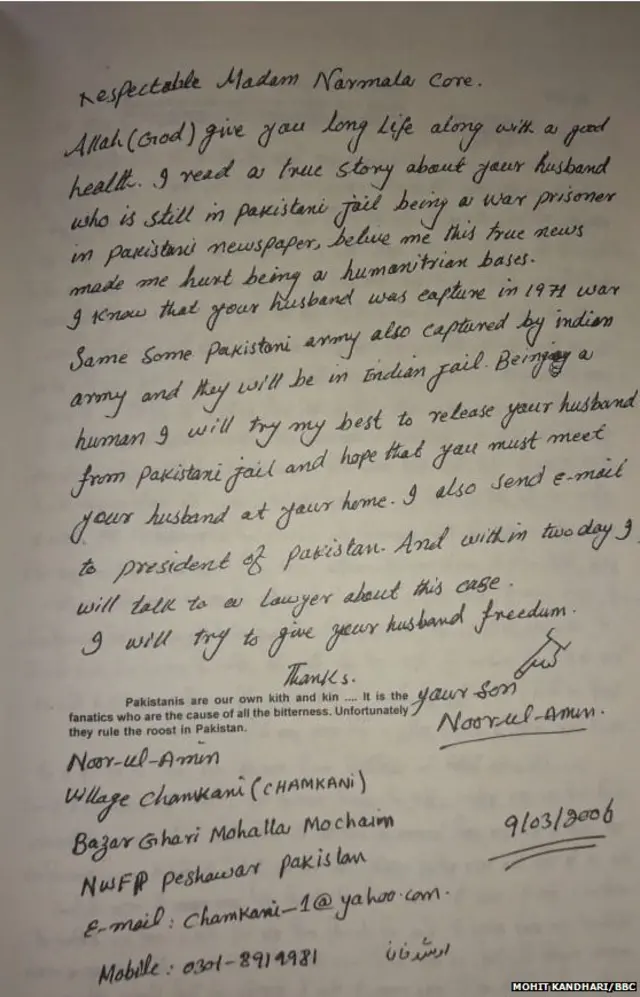 Respectable Madam Narmala Core.
Allah (God) give you long life along with a good
health. I read a true story about your husband
who is still in pakistani jail being a war prisoner
in pakistani newspaper, belive me this true news
made me hurt being a humanitrian bases.
I know that your husband was capture in 1971 war
Same Some pakistani army also captured by indian
army and they will be in Indian jail. Being a
human I will try my best to release your husband
from pakistani jail and hope that you must meet
your husband at your home. I also send e-mail
to president of pakistan. And with in two day I
will talk to a lawyer about this case.
I will try to give your husband freedom.
Thanks.
Pakistanis are our own kith and kin .... It is the
fanatics who are the cause of all the bitterness. Unfortunately
they rule the roost in Pakistan.
your Son
Noor-ul-Amin.
Noor-ul-Amin
Village Chamkani (CHAMKANI)
Bazar Ghari Mohalla Mochain
NWFP Peshawar pakistan
9/03/2006
E-mail : Chamkani_1@yahoo.com.
Mobile : 0301-8919981
ارشد خان
MOHIT KANDHARI/BBC